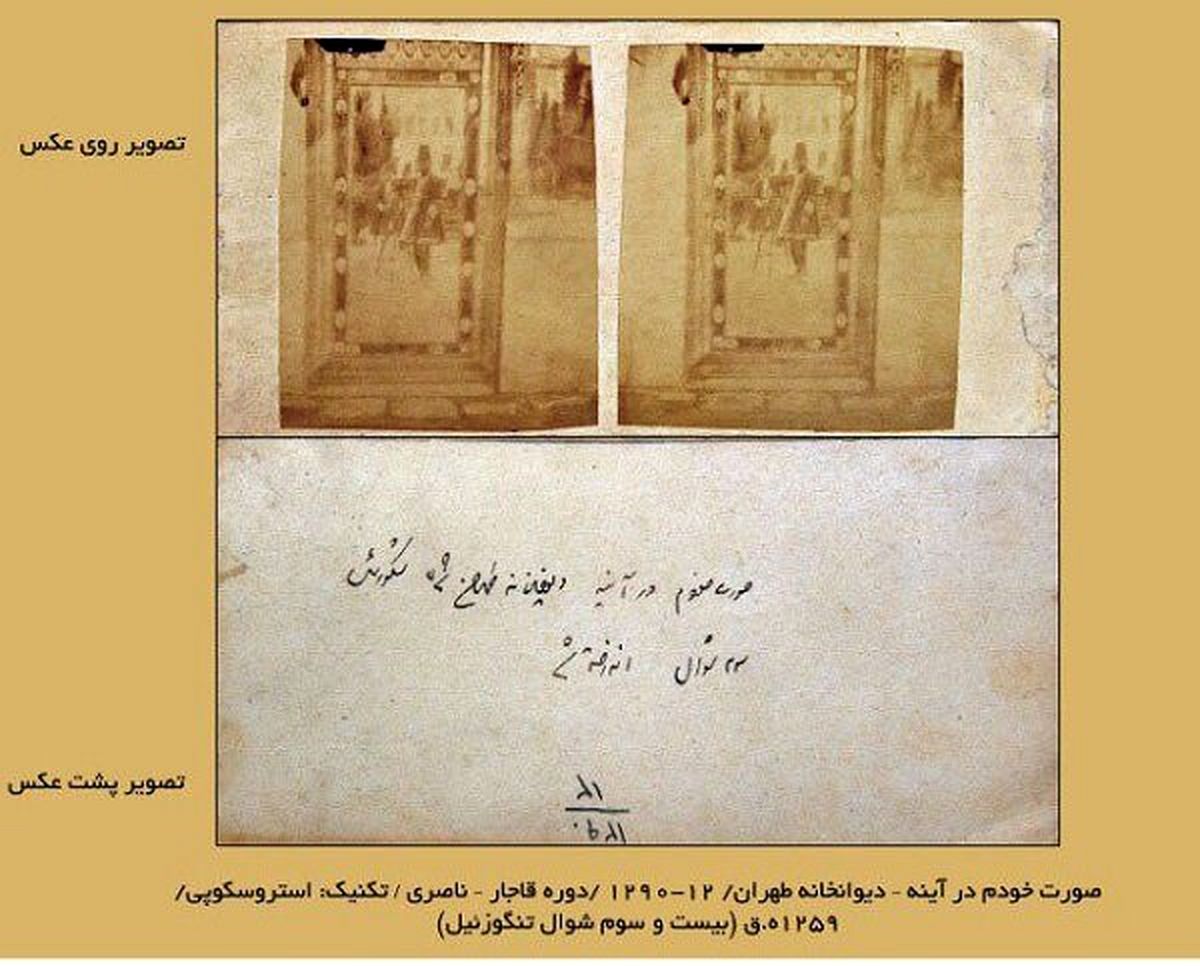 تصویر روی عکس
صورت خودم در آینه دیوانخانه طهران
۲۳ شوال انداخته شد
تصویر پشت عکس
صورت خودم در آینه - دیوانخانه طهران/ ۱۲-۱۲۹۰ /دوره قاجار - ناصری / تکنیک: استروسکوپی/
۱۲۵۹ه.ق (بیست و سوم شوال تنگوزئیل)